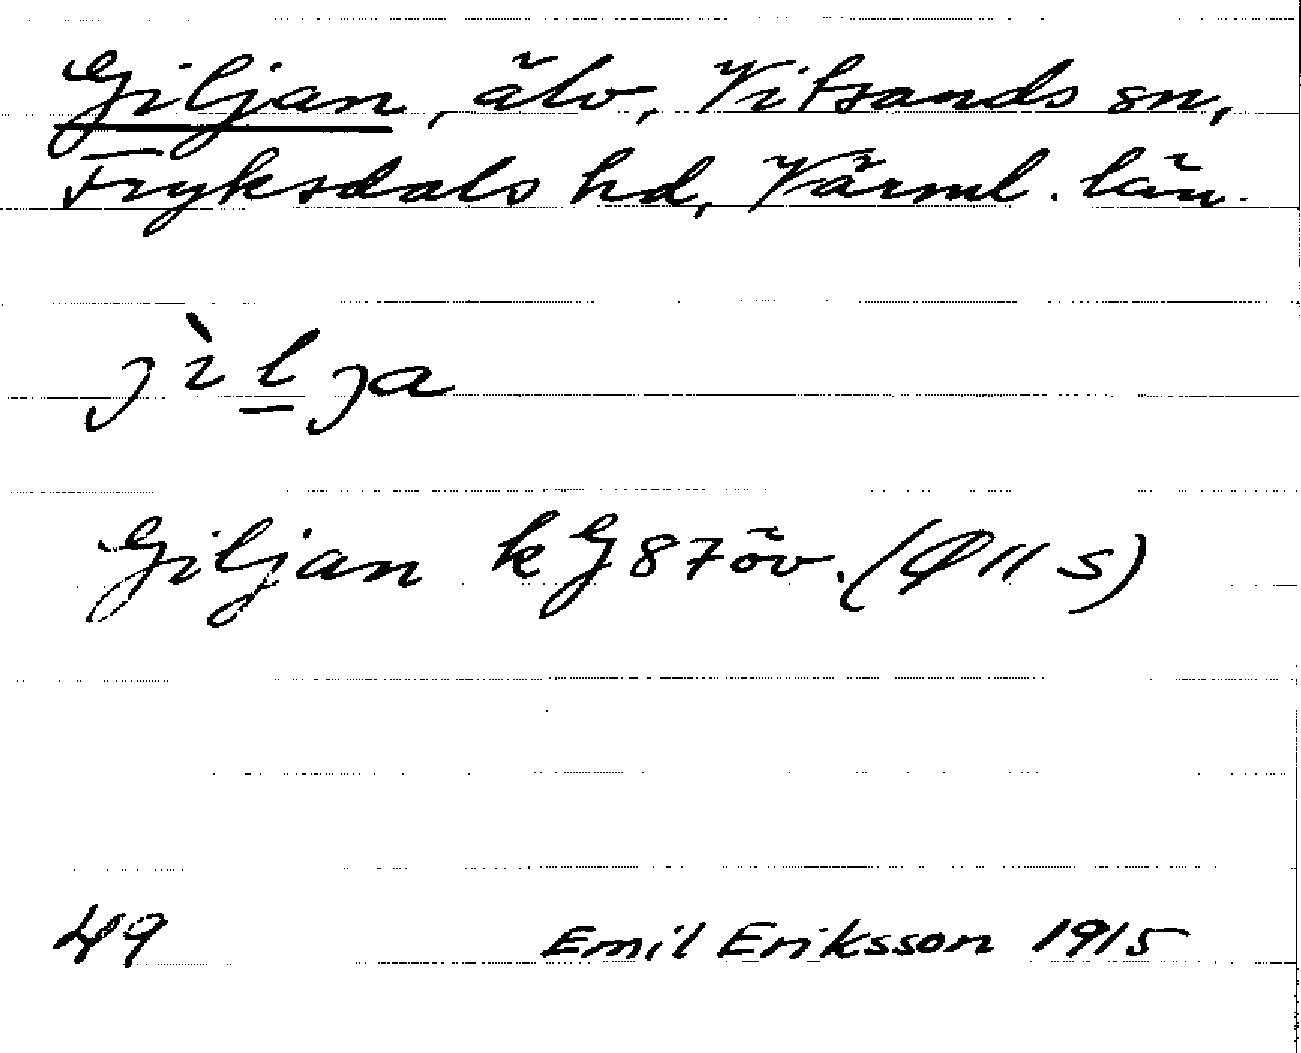 Giljan, älv, Vitsands sn,
Fryksdals hd, Värml. län.
jìlja
Giljan kG 87 öv. (Ø 11 S)
49 Emil Eriksson 1915